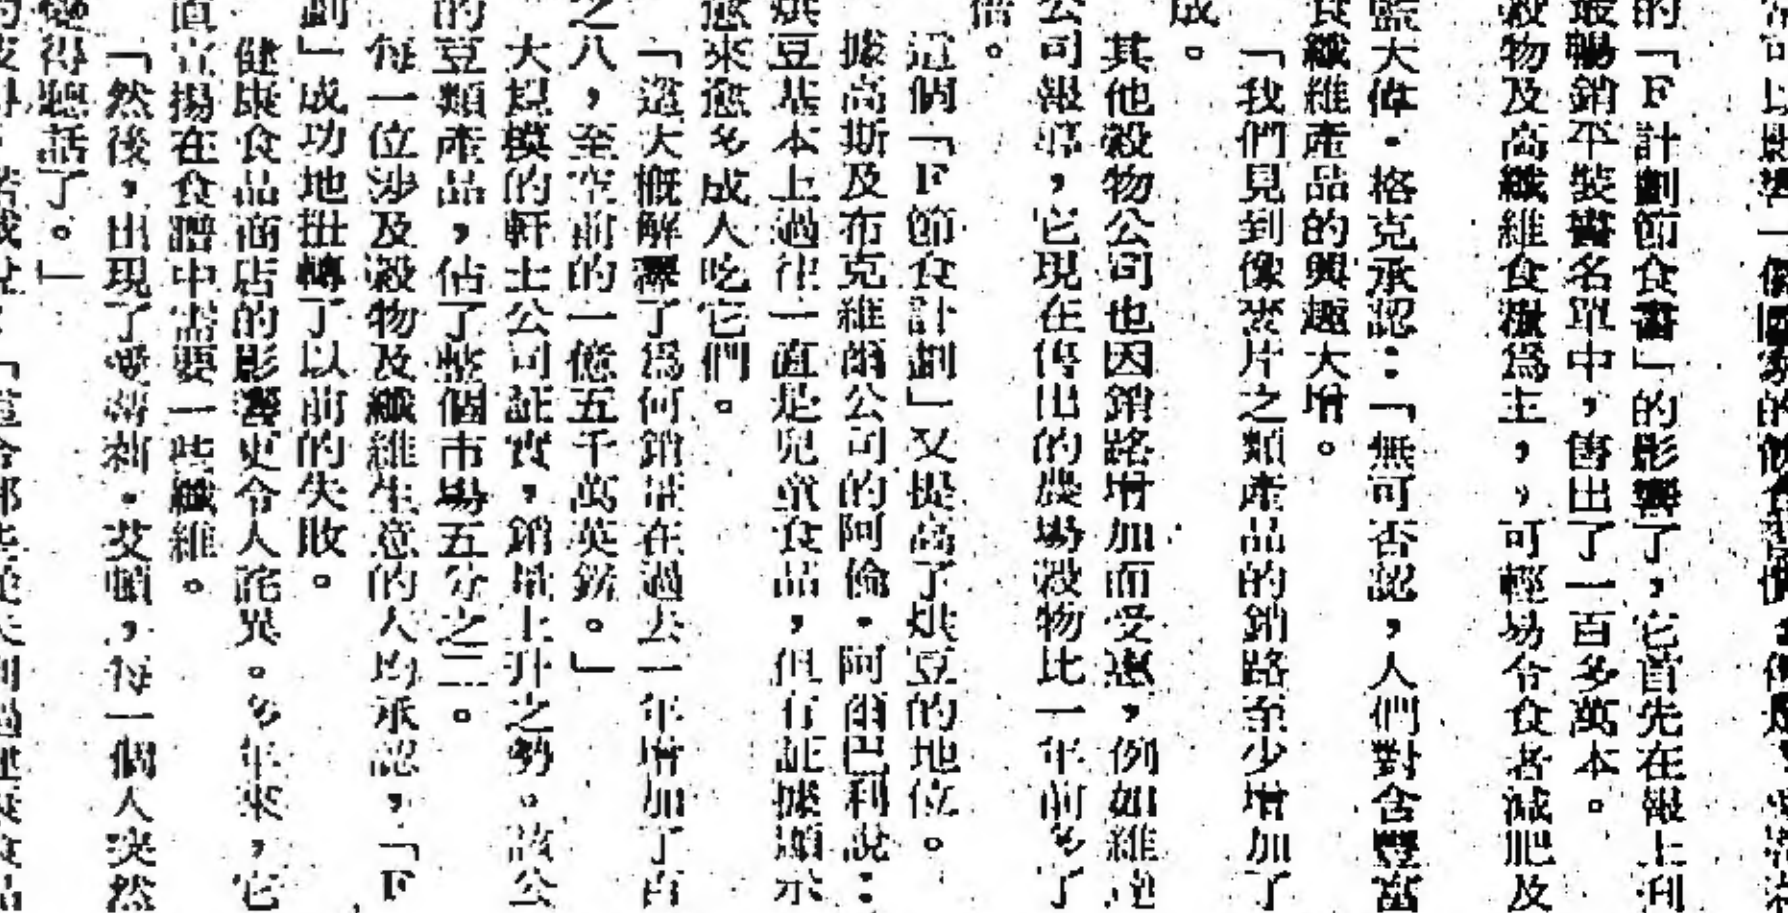 常可以影響一個國家的飲食習慣
的「F計劃節食書」的影響了，它首先在報上刊
最暢銷平裝書名單中，售出了一百多萬本。
穀物及高纖維食糧爲主，，可輕易令食者減肥及
藍大偉．格克承認：「無可否認，人們對含豐富
食纖維產品的興趣大增。
「我們見到像麥片之類產品的銷路至少增加了
成。
其他穀物公司也因銷路增加而受惠，例如維
公司報導，它現在售出的農場穀物比一年前多了
倍。
這個「F節食計劃」又提高了烘豆的地位。
據高斯及布克維爾公司的阿倫．阿爾巴利說：
烘豆基本上過往一直是兒童食品，但有証據顯示
愈來愈多成人吃它們。
「這大概解釋了爲何銷量在過去一年增加了百
之八，至空前的一億五千萬英鎊。」
大規模的軒士公司証實，銷量上升之勢。該公
的豆類產品，佔了整個市場五分之二。
每一位涉及穀物及纖維生意的人均承認，「F
劃」成功地扭轉了以前的失敗。
健康食品商店的影響更令人詫異。多年來，它
直宣揚在食譜中需要一些纖維。
「然後，出現了愛莉．艾頓，每一個人突然
變得聽話了。」